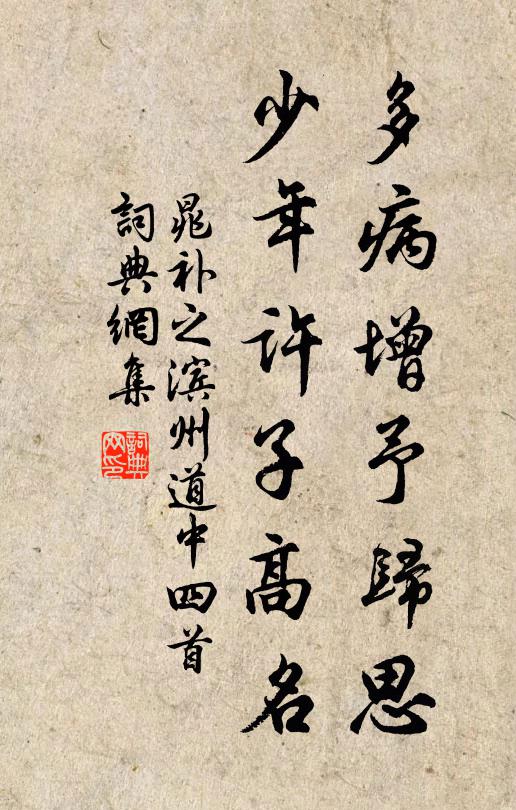 多病增予歸思
少年許子高名
晁补之滨州道中四首
詞典網集
詞典网印